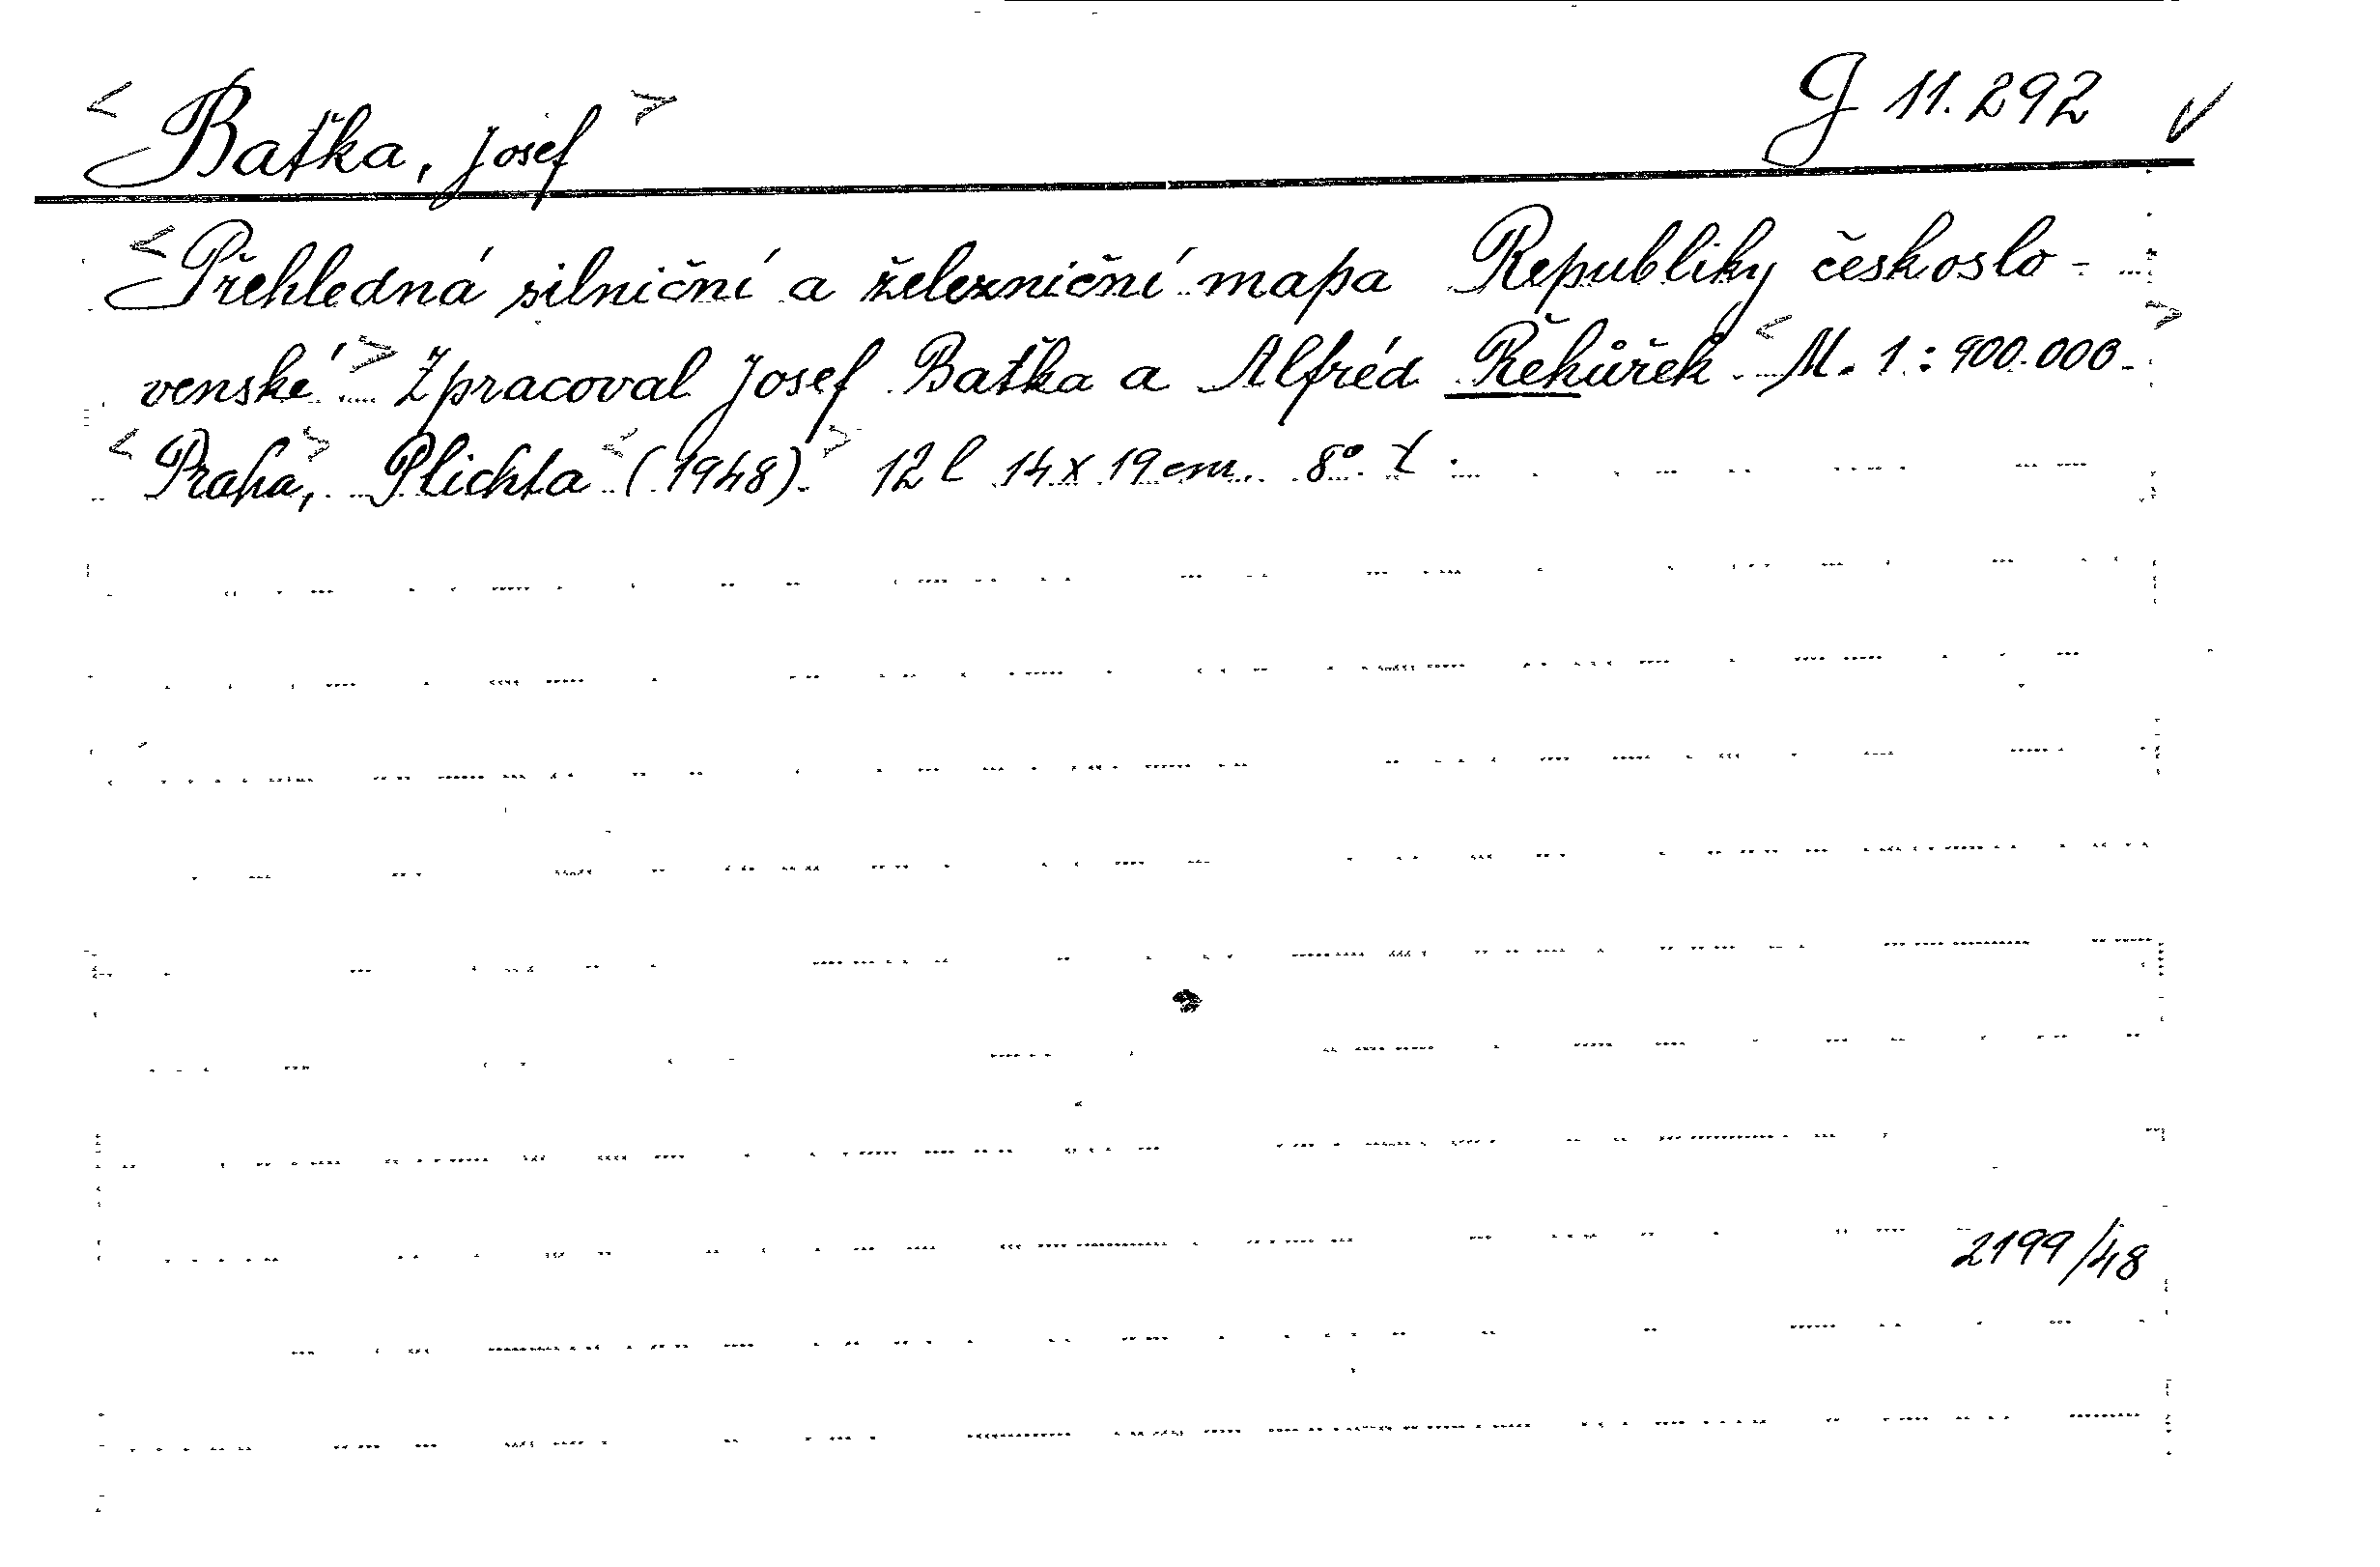 <Baťka, Josef> G 11.292 ✓
<Přehledná silniční a železniční mapa Republiky českoslo-
venské> Zpracoval Josef Baťka a Alfréd Řehůřek <M. 1:900.000->
<Praha,> Plichta <(1948)> 12 l 14 x 19 cm. 8°.
2199/48